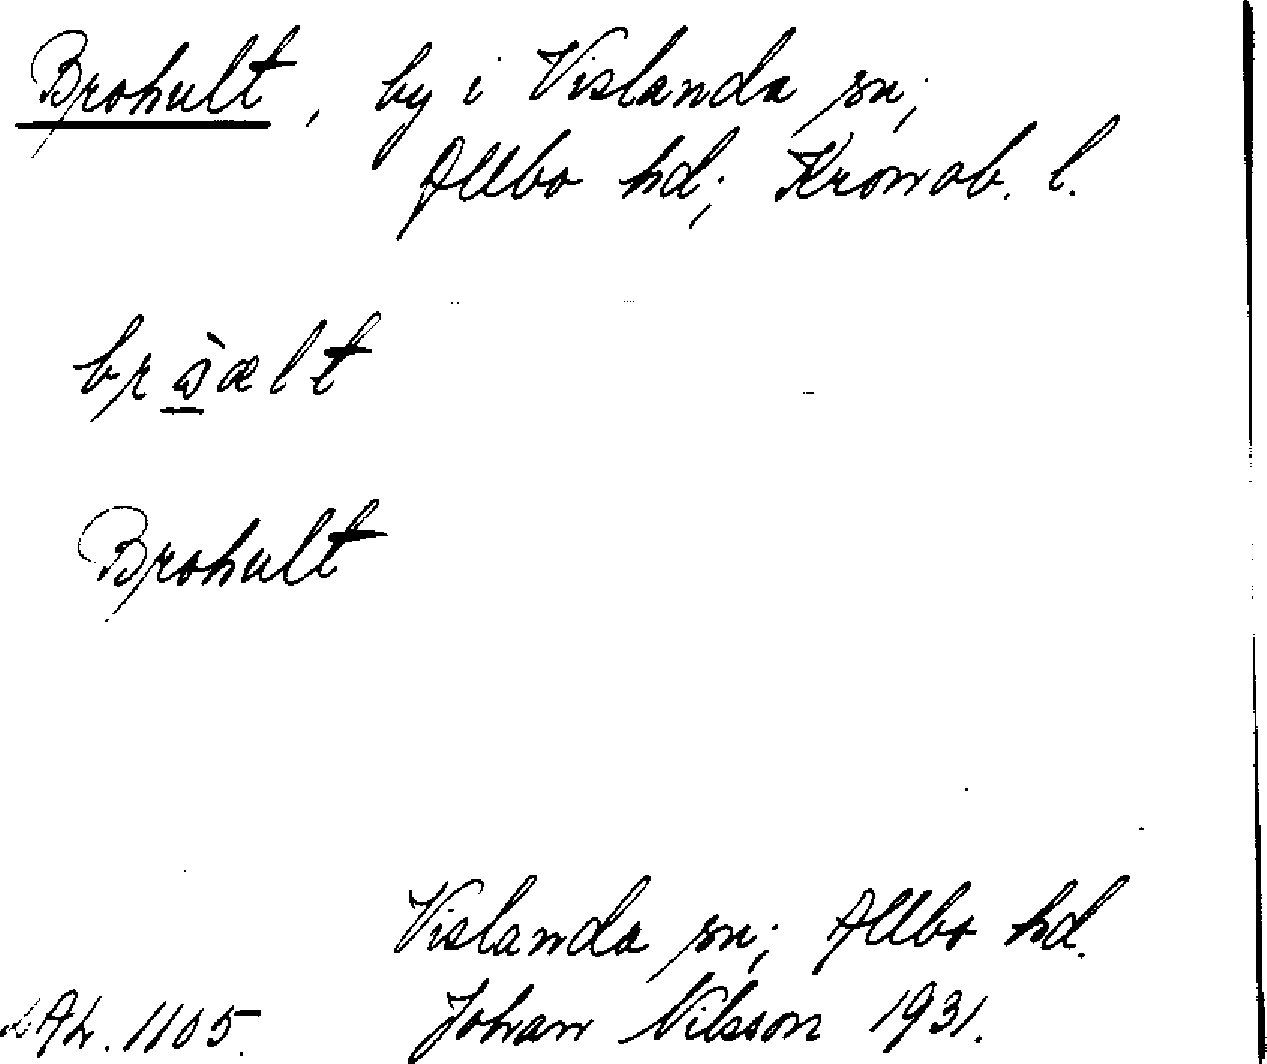 Brohult, by i Vislanda sn;
Allbo hd; Kronob. l.
Brohult
Vislanda sn; Allbo hd.
Johan Nilsson 1931.
1105.